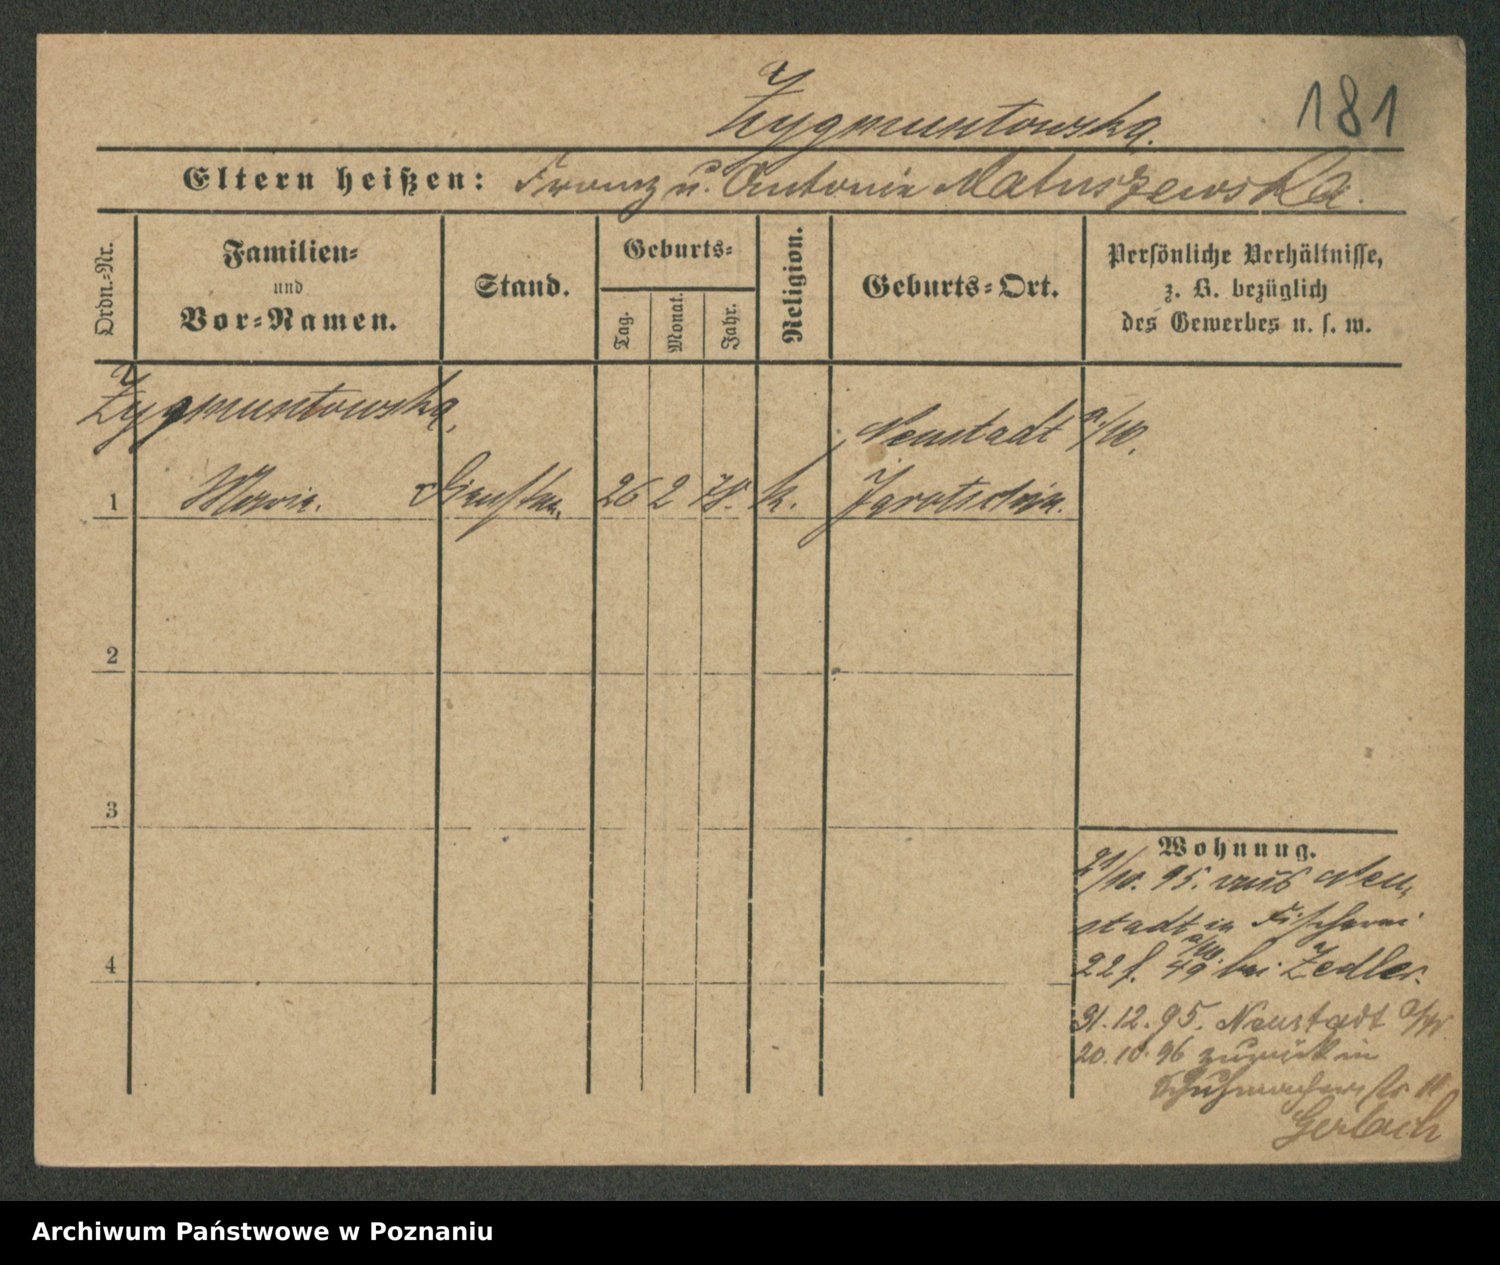 Zygmuntowska.
181
Eltern heißen: Franz u. Antonie Matuszewska.
Ordn.-Nr.
Familien-
und
Vor-Namen.
Stand.
Geburts-
Tag.
Monat.
Jahr.
Religion.
Geburts-Ort.
Persönliche Verhältnisse,
z. B. bezüglich
des Gewerbes u. s. w.
Zygmuntowska,
Neustadt a/W.
1 Maria. 26 2 78. k. Jarotschin.
2
3
4
Wohnung.
21/10. 95. aus Neu-
stadt in Fischerei
a/W.
22 f. 49 bei Zedler.
31.12.95. Neustadt a/W
20.10.96 zurück in
Schuhmacherstr 11
Gerlach
Archiwum Państwowe w Poznaniu